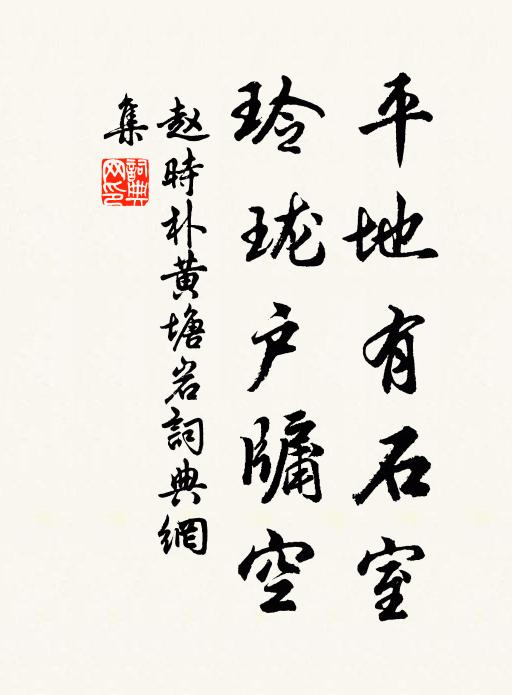 平地有石室
玲珑户牖空
赵時朴黄塘岩詞典網
集
詞典網印